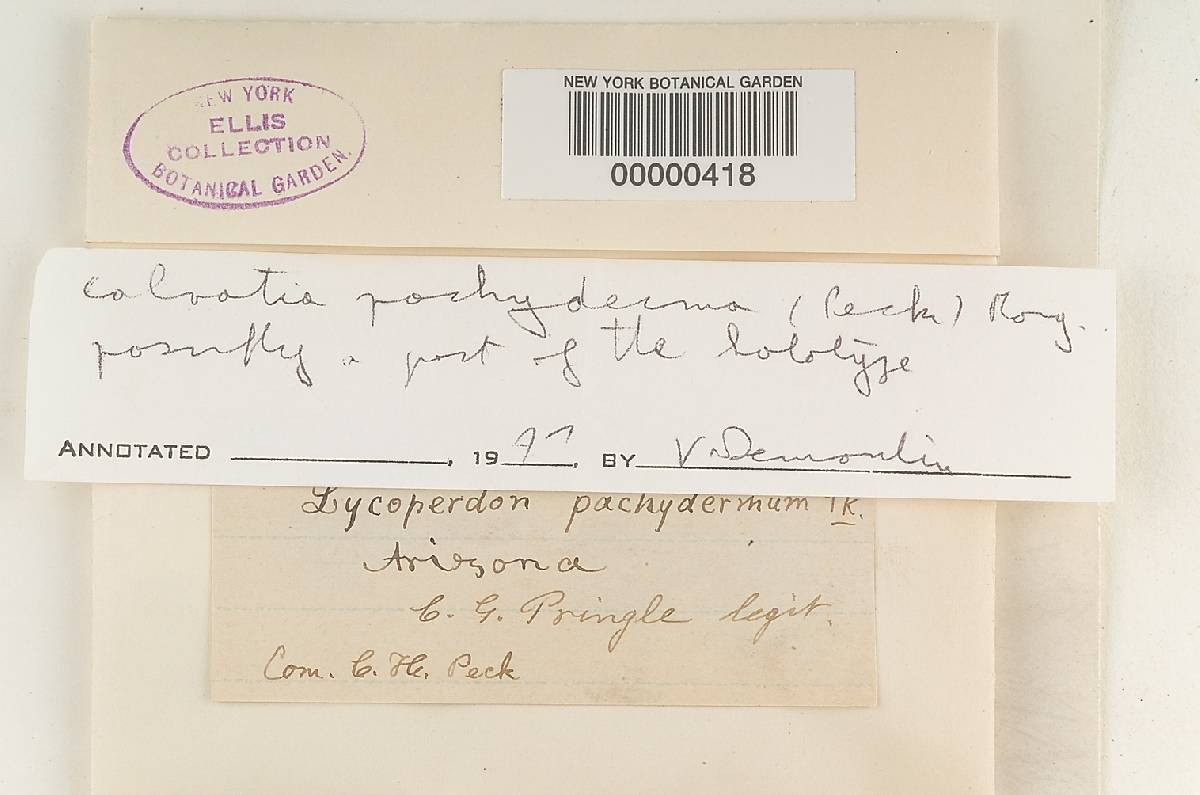 NEW YORK
ELLIS
COLLECTION
BOTANICAL GARDEN.
NEW YORK BOTANICAL GARDEN
00000418
Calvatia pachyderma (Peck) Morg.
possibly a part of the holotype
ANNOTATED , 19 , BY V Demoulin
Lycoperdon pachydermum Pk.
Arizona
C. G. Pringle legit.
Com. C. H. Peck